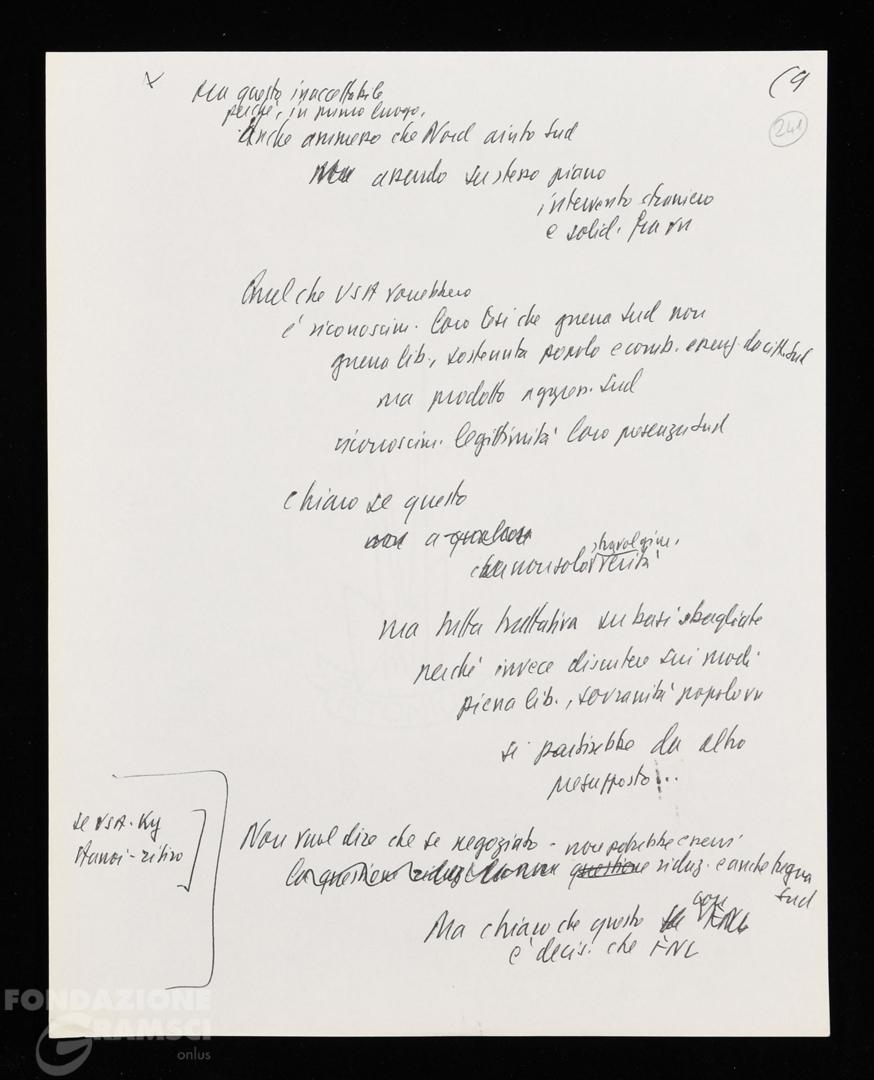 (9
241
Ma questo inaccettabile
perché, in primo luogo,
Anche ammesso che Nord aiuto Sud
assurdo su stesso piano
intervento straniero
e solid. fra vn
Quel che USA vorrebbero
è riconoscim. loro tesi che guerra Sud non
guerra lib., sostenuta popolo e comb. essenz. da citt. Sud
ma prodotto aggress. Sud
riconoscim. legittimità loro presenza Sud
Chiaro se questo
non a
non solo stravolgim. verità
ma tutta trattativa su basi sbagliate
perché invece discutere sui modi
piena lib., sovranità popolo vn
si partirebbe da altro
presupposto...
se USA-Ky
Hanoi-ritiro
Non vuol dire che se negoziato - non potrebbe esservi
questione riduz. e anche tregua
Sud
Ma chiaro che questo
è decis. che FNL
FONDAZIONE
GRAMSCI
onlus